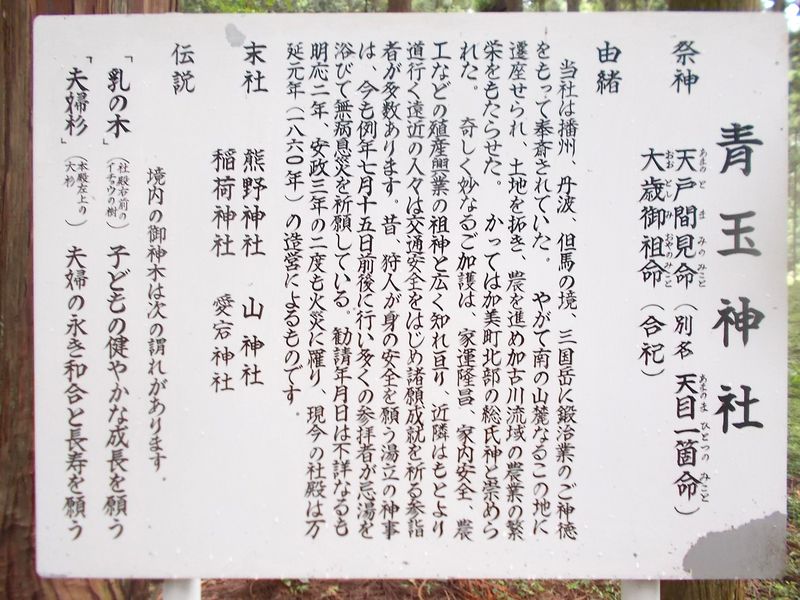 青玉神社
祭神
天戸間見命(別名 天目一箇命)
あまのとまみのみこと
あまのまひとつのみこと
大歳御祖命(合祀)
おおとしみおやのみこと
由緒
当社は播州、丹波、但馬の境、三国岳に鍛冶業のご神徳
をもって奉斎されていた。 やがて南の山麓なるこの地に
遷座せられ、土地を拓き、農を進め加古川流域の農業の繁
栄をもたらせた。 かっては加美町北部の総氏神と崇めら
れた。 奇しく妙なるご加護は、家運隆昌、家内安全、農
工などの殖産興業の祖神と広く知れ亘り、近隣はもとより
道行く遠近の人々は交通安全をはじめ諸願成就を祈る参詣
者が多数あります。昔、狩人が身の安全を願う湯立の神事
は、今も例年七月十五日前後に行い多くの参拝者が忌湯を
浴びて無病息災を祈願している。勧請年月日は不詳なるも
明応二年 安政三年の二度も火災に罹り、現今の社殿は万
延元年(一八六〇年)の造営によるものです。
末社 熊野神社 山神社
稲荷神社 愛宕神社
伝説
境内の御神木は次の謂れがあります.
「乳の木」(社殿右前のイチョウの樹) 子どもの健やかな成長を願う
「夫婦杉」(本殿左上の大杉) 夫婦の永き和合と長寿を願う